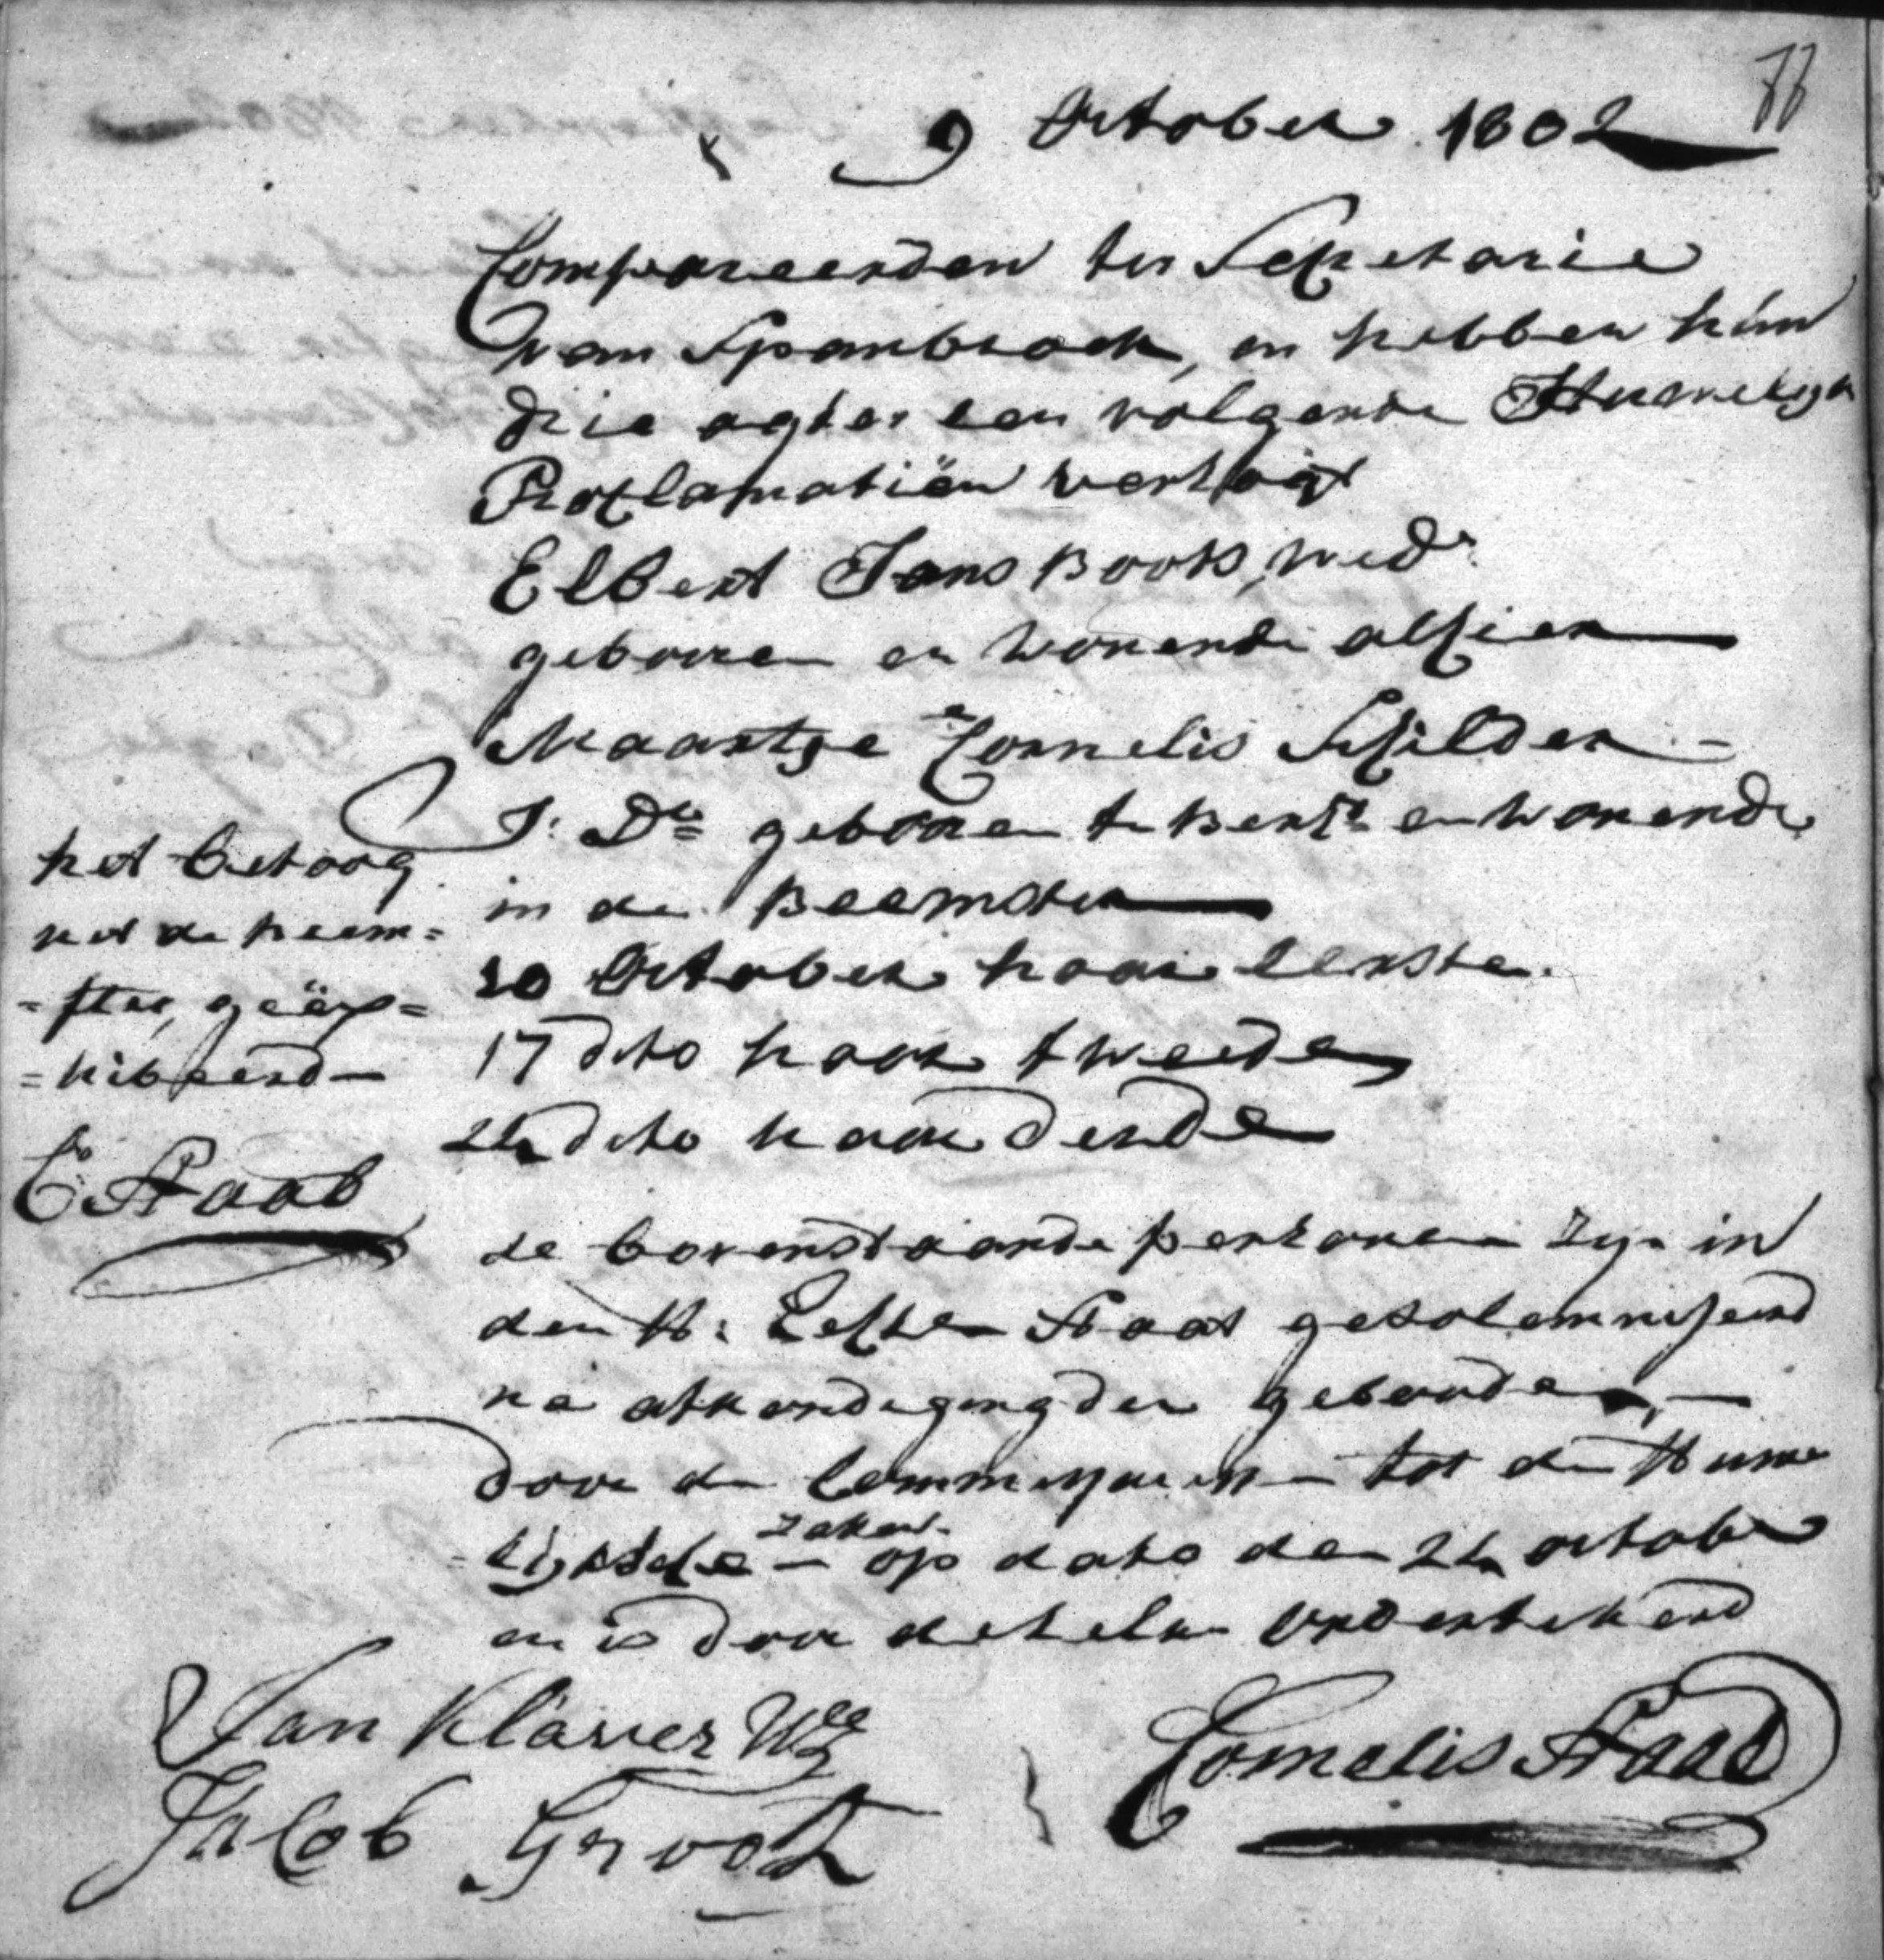 9 October 1802
Compareerden ter Secretarie
van Spanbroek, en hebben hun
drie agter een volgende Huwelyx
Proclamatiën verzogt
Elbert Jans Boots, wedr
gebooren en wonende alhier
Maartje Cornelis Schilder
J: Dr gebooren te en wonende
in de Beemster
10 October haar eerste
17 dito haar tweede
24 dito haar derde
het betoog
uit de Beem=
=ster, geëx=
=hibeerd
Cs Staat
de bovenstaande perzonen zyn in
den H: Echten Staat gesolemniseerd
na afkondiging der gebooden,
door de Commissarissen tot de Huwe
lijksche zaken op dato den 24 october
en is door dezelve onderteekend
Jan Klaver Wz
Jacob Groot
Cornelis Staat